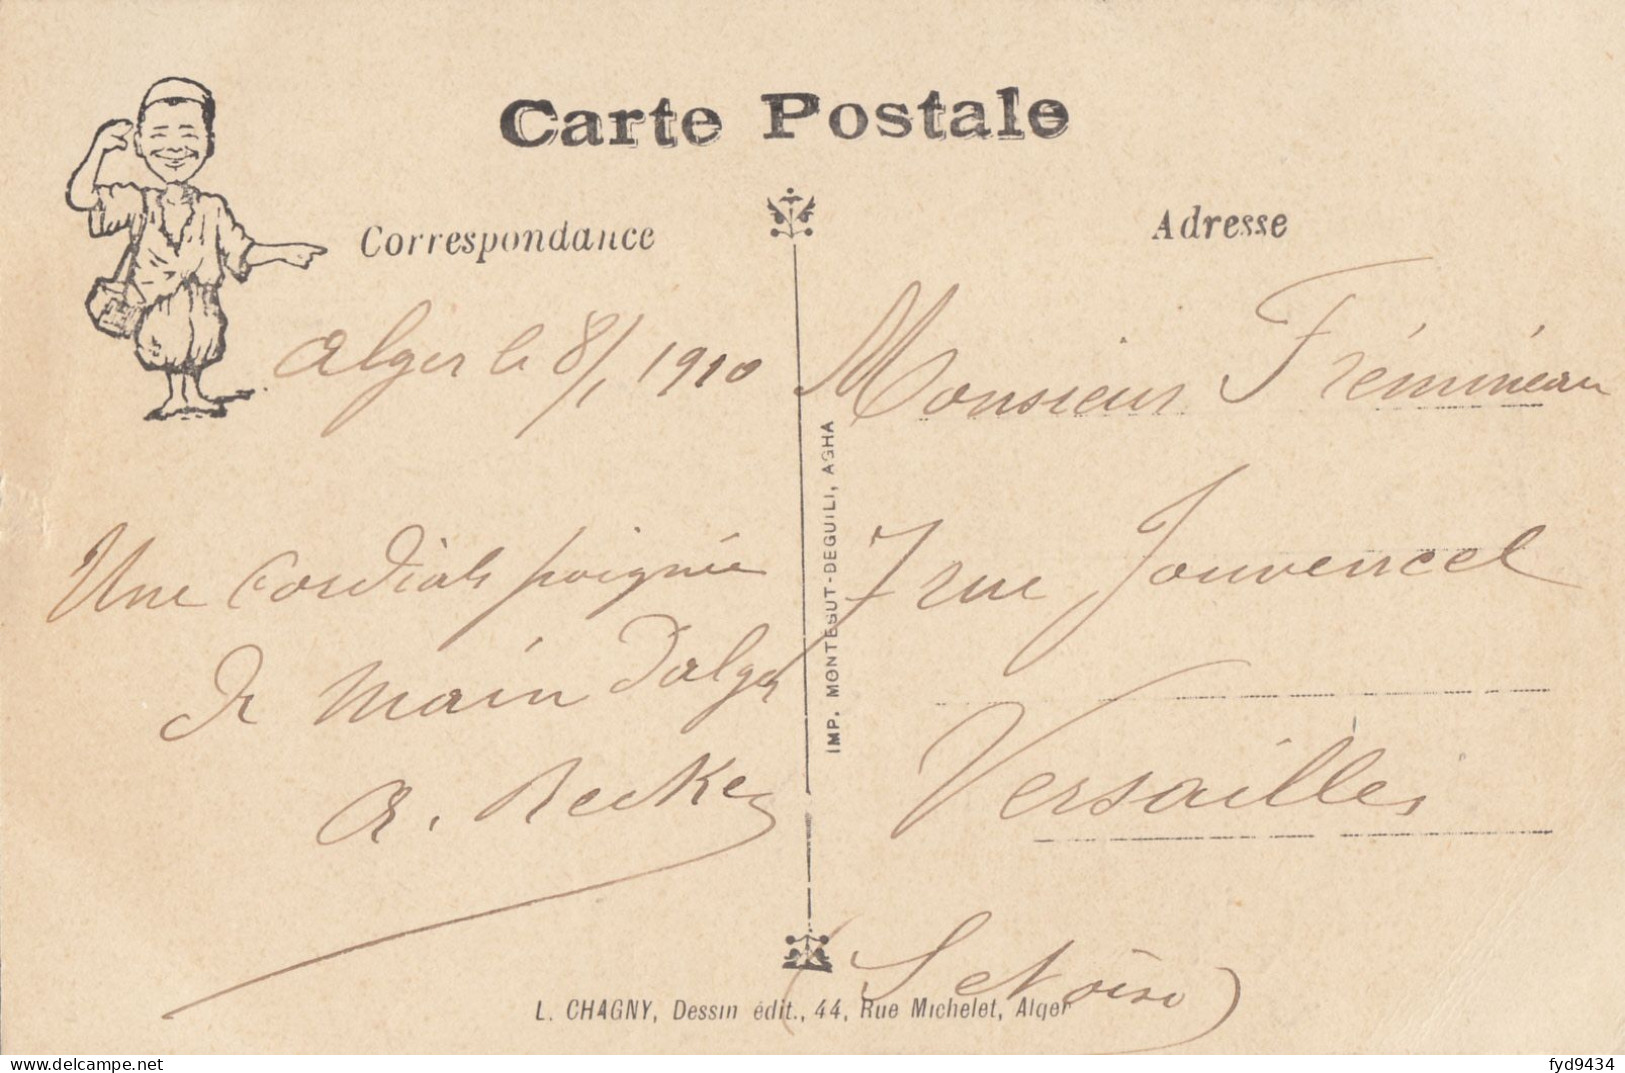 Carte Postale
Correspondance
Adresse
Alger le 8/1 1910
Une Cordiale poignée
de main d'alger
A. Becker
Monsieur Frémineau
7 rue Jouvencel
Versailles
(S et Oise)
IMP. MONTEGUT-DEGUILI, AGHA
L. CHAGNY, Dessin édit., 44, Rue Michelet, Alger
delcampe.net
fyd9434